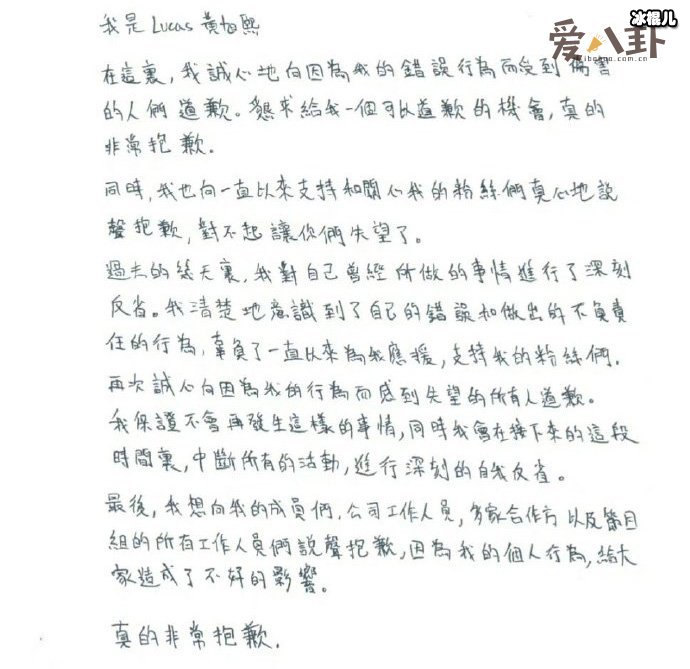 冰棍儿
爱八卦
我是 Lucas 黃旭熙
在這裏，我誠心地向因為我的錯誤行為而受到傷害
的人們道歉。懇求給我一個可以道歉的機會，真的
非常抱歉。
同時，我也向一直以來支持和關心我的粉絲們真心地說
聲抱歉，對不起讓你們失望了。
過去的幾天裏，我對自己曾經所做的事情進行了深刻
反省。我清楚地意識到了自己的錯誤和做出的不負責
任的行為，辜負了一直以來為我應援，支持我的粉絲們．
再次誠心向因為我的行為而感到失望的所有人道歉。
我保證不會再發生這樣的事情，同時我會在接下來的這段
時間裏，中斷所有的活動，進行深刻的自我反省。
最後，我想向我的成員們．公司工作人員，多家合作方以及節目
組的所有工作人員們說聲抱歉，因為我的個人行為，給大
家造成了不好的影響。
真的非常抱歉．